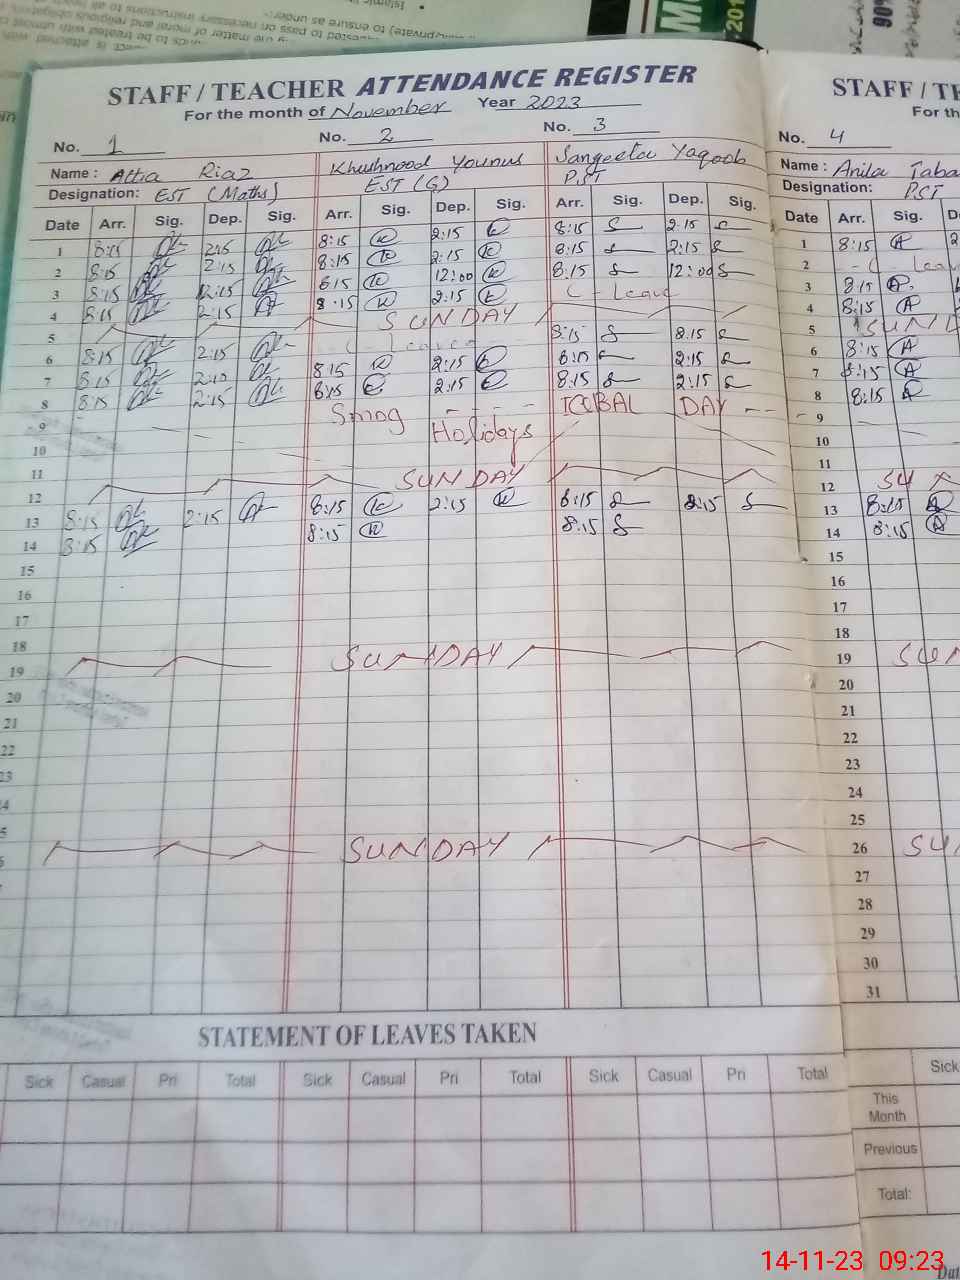 STAFF / TEACHER ATTENDANCE REGISTER
For the month of November Year 2023
No. 1 No. 2 No. 3
Name : Attia Riaz Khushnood Younus Sangeeta Yaqoob
Designation: EST (Maths) EST (G) PST
Date Arr. Sig. Dep. Sig. Arr. Sig. Dep. Sig. Arr. Sig. Dep. Sig.
1 8:15 2:15 8:15 2:15 8:15 2:15
2 8:15 2:15 8:15 2:15 8:15 2:15
3 8:15 12:15 8:15 12:00 8:15 12:00
4 8:15 2:15 8:15 2:15 C - Leave
5 SUNDAY
6 8:15 2:15 C - Leave 8:15 2:15
7 8:15 2:10 8:15 2:15 8:15 2:15
8 8:15 2:15 8:15 2:15 8:15 2:15
9 Smog IQBAL DAY
10 Holidays
11
12 SUNDAY
13 8:15 2:15 8:15 2:15 8:15 2:15
14 8:15 8:15 8:15
15
16
17
18
19 SUNDAY
20
21
22
23
SUNDAY
STATEMENT OF LEAVES TAKEN
Sick Casual Pri Total Sick Casual Pri Total Sick Casual Pri Total
STAFF / TE
For th
No. 4
Name : Anila Taba
Designation: PST
Date Arr. Sig. D
1 8:15
2 - C Leav
3 8:15
4 8:15
5 SUN
6 8:15
7 8:15
8 8:15
9
10
11
12 SU
13 8:15
14 8:15
15
16
17
18
19 SUN
20
21
22
23
24
25
26 SU
27
28
29
30
31
Sick
This
Month
Previous
Total:
Dat
14-11-23 09:23